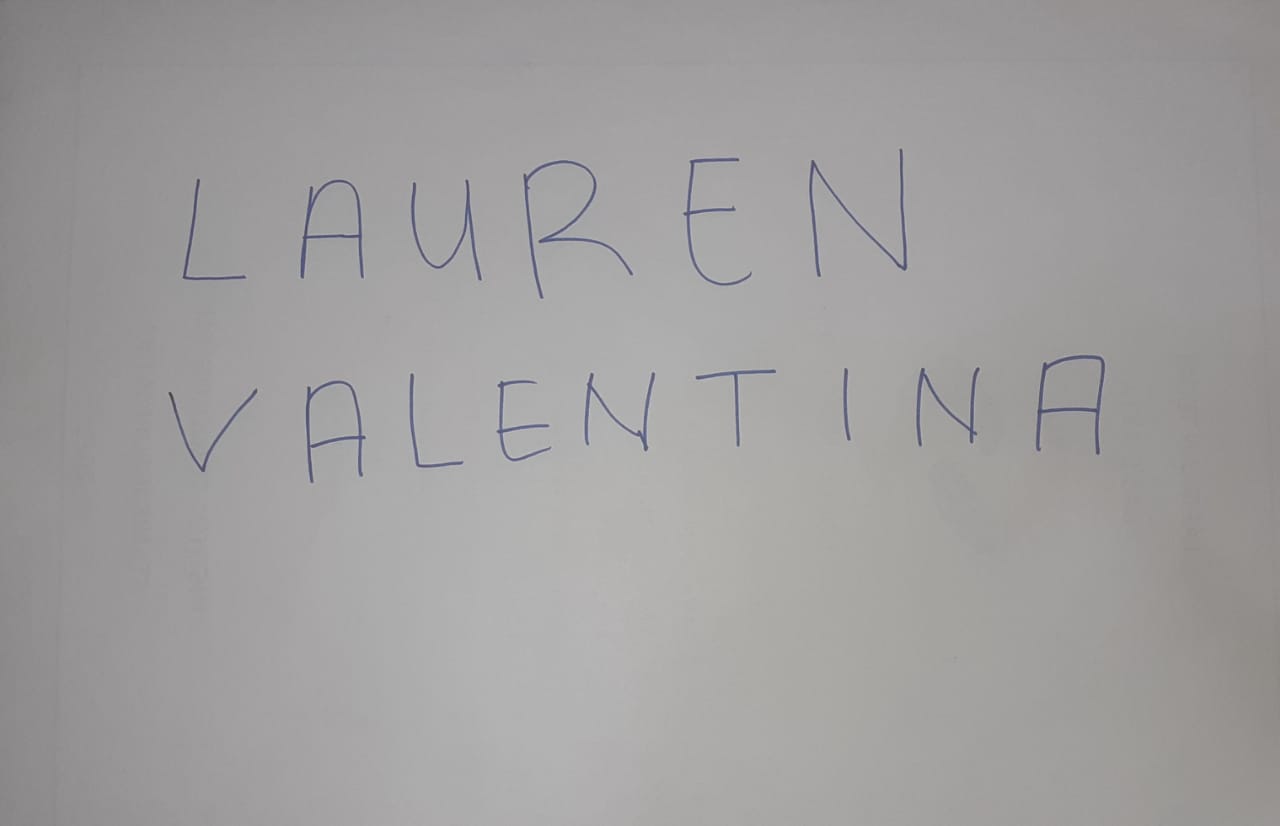 LAUREN
VALENTINA